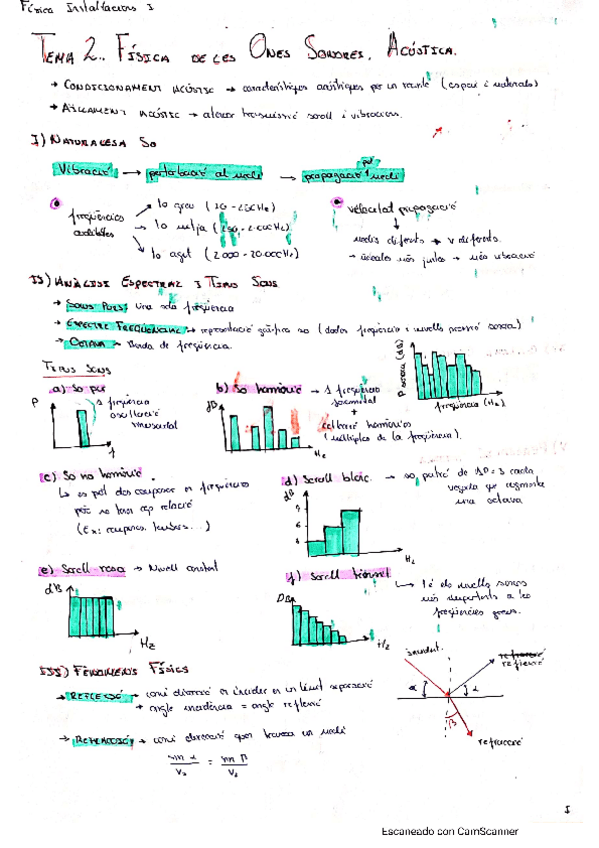 Física Instal·lacions I
TEMA 2.. FÍSICA DE LES ONES SONORES. ACÚSTICA.
→ CONDICIONAMENT ACÚSTIC → característiques acústiques per un recinte (espai i materials)
→ AÏLLAMENT ACÚSTIC → atenuar transmissió soroll i vibracions.
I) NATURALESA SO
Vibració → pertorbació al medi → propagació pel medi
freqüències audibles
to greu (20-200Hz)
to mitja (200-2.000Hz)
to agut (2000-20.000Hz)
velocitat propagació
medis diferents → v diferents.
II) ANÀLISI ESPECTRAL I TIPUS SONS
→ SONS PURS: una sola freqüència
→ ESPECTRE FREQÜENCIAL → representació gràfica so (dades freqüència i nivells pressió sonora)
→ OCTAVA → Banda de freqüència.
TIPUS SONS
a) So pur
P
1 freqüència
oscil·lació
sinusoidal
f
b) So harmònic → 1 freqüència
fonamental
+
harmònics
(múltiples de la freqüència).
dB
Hz
P sonora (dB)
freqüència (Hz)
c) So no harmònic.
↳ es pot descompondre en freqüències
però no tenen cap relació
(Ex: campanes, timbres...)
d) Soroll blanc. → so, patró de 10 = 3 cada
vegada que augmenta
una octava
dB
Hz
e) Soroll rosa → Nivell constant
dB
Hz
f) Soroll
↳ Té els nivells sonors
més importants a les
freqüències greus.
DB
Hz
III) FENÒMENS FÍSICS
→ REFLEXIÓ → canvi direcció en incidir en un límit separació
→ angle incidència = angle reflexió
→ REFRACCIÓ → canvi direcció quan travessa un medi
incident.
reflexió
α
α
β
refracció
1
Escaneado con CamScanner